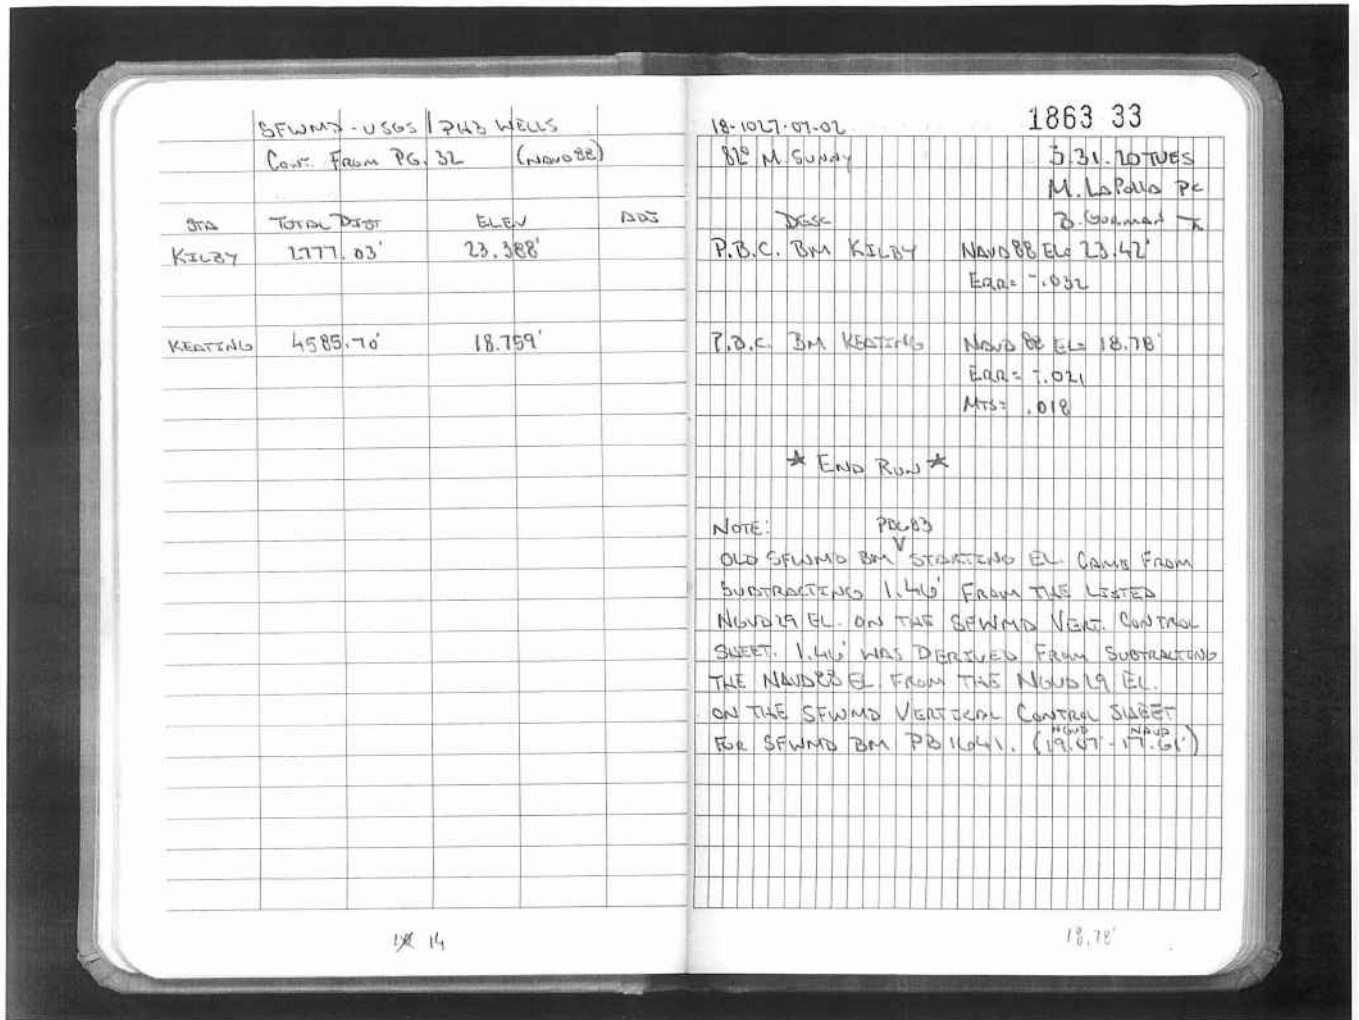 SFWMD - USGS / PH3 WELLS
CONT. FROM PG. 32 (NAVD88)
STA TOTAL DIST ELEV ADJ
KILBY 2777.03' 23.388'
KEATING 4585.70' 18.759'
14
18-1027-07-02 1863 33
82° M. SUNNY 3.31.20 TUES
M. LaPolla PC
DESC B. Gorman
P.B.C. BM KILBY NAVD88 EL= 23.42'
ERR= -.032
P.B.C. BM KEATING NAVD 88 EL= 18.78'
ERR= -.021
MTS= .018
* END RUN *
NOTE:
OLD SFWMD BM STARTING EL. CAME FROM
SUBTRACTING 1.46' FROM THE LISTED
NGVD29 EL. ON THE SFWMD VERT. CONTROL
SHEET. 1.46' WAS DERIVED FROM SUBTRACTING
THE NAVD88 EL. FROM THE NGVD29 EL.
ON THE SFWMD VERTICAL CONTROL SHEET
NGVD NAVD
FOR SFWMD BM PB1641. (19.07'-17.61')
18.78'